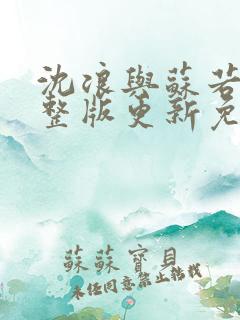 沈浪與蘇若
整版更新免
蘇蘇寶貝
未任同意禁止轉載